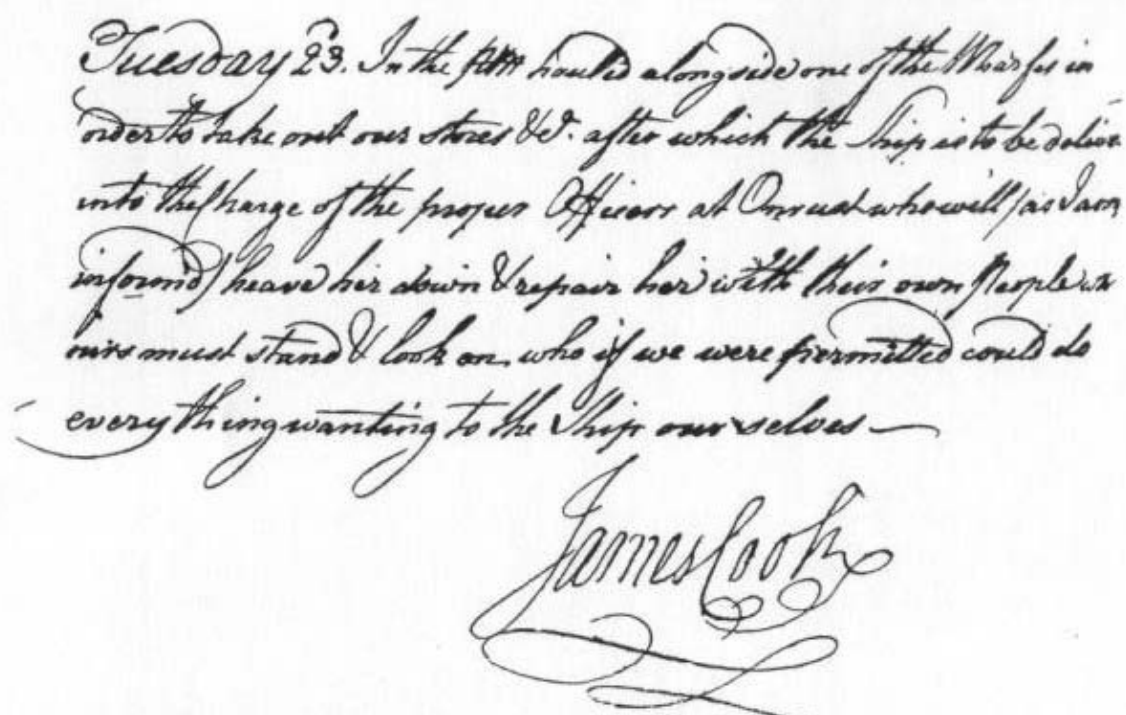 Tuesday 23. In the PM hauld alongside one of the Wharfes in
order to take out our stores &c. after which the Ship is to be deliver
into the Charge of the proper Officers at Onrust who will (as I am
informd) heave her down & repair her with their own People
ours must stand & look on, who if we were permitted could do
every thing wanting to the Ship our selves —
James Cook